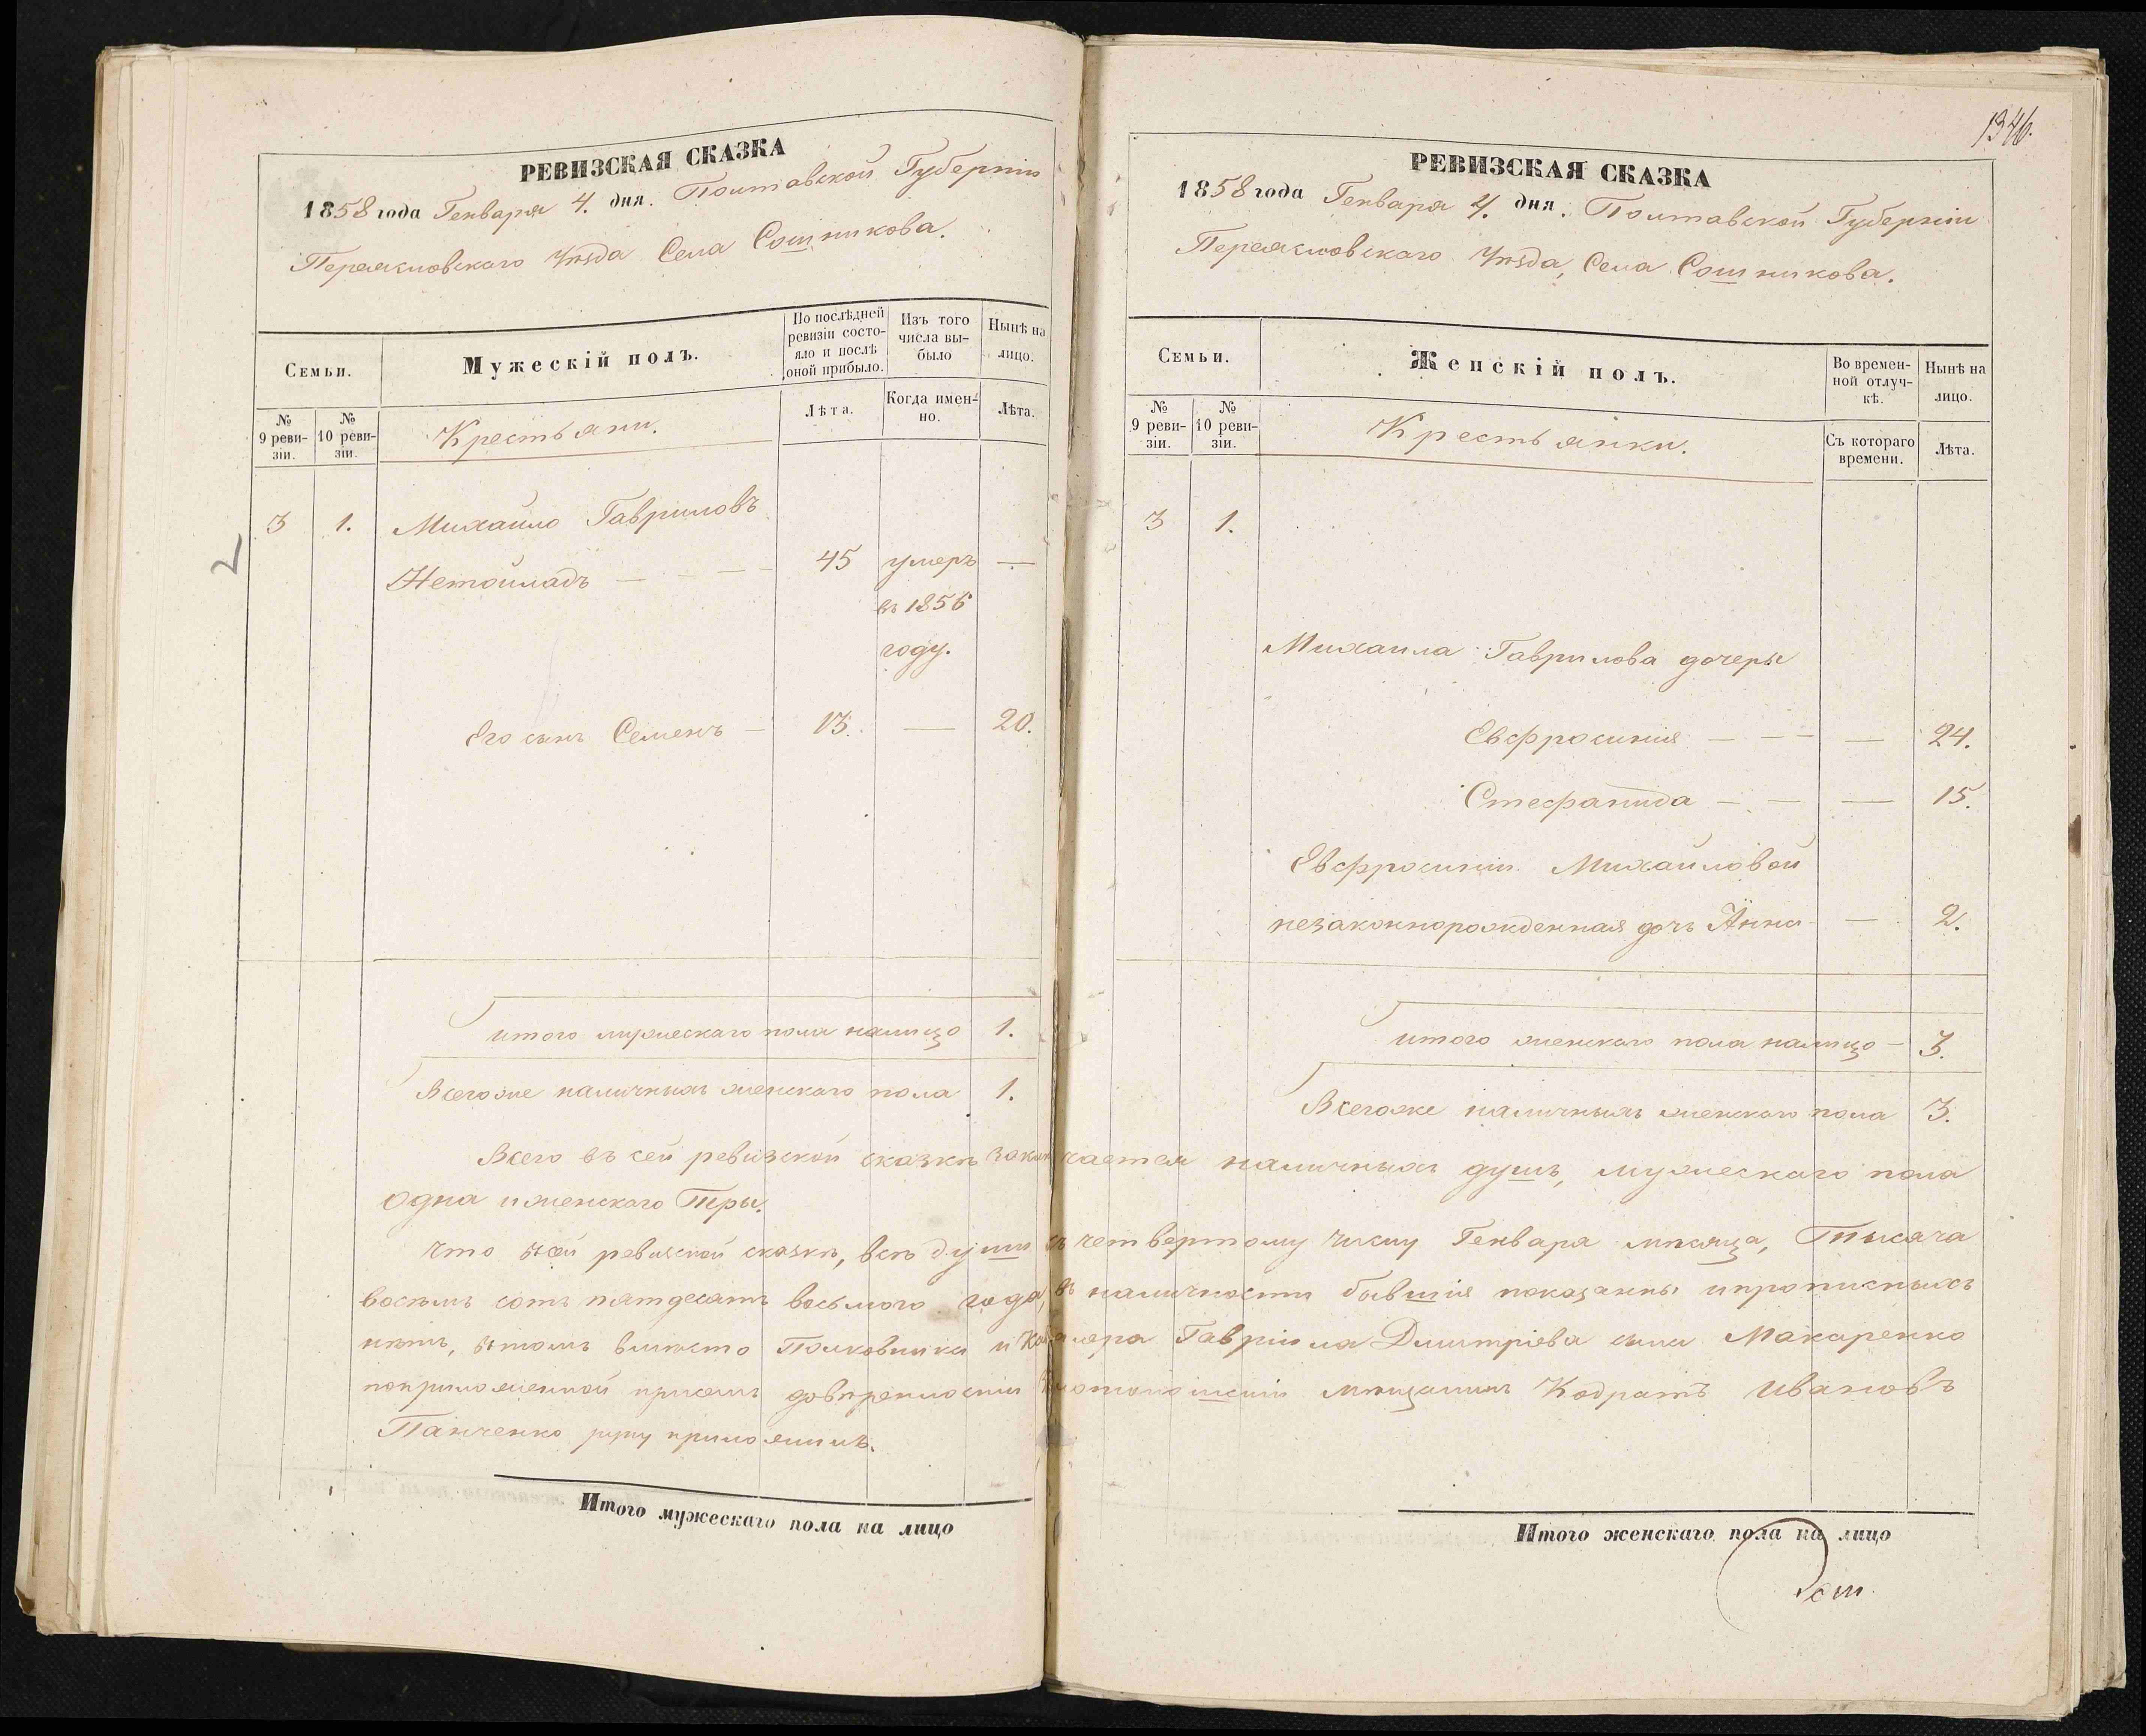 РЕВИЗСКАЯ СКАЗКА
1858 года Генваря 4. дня. Полтавской Губерніи
Переясловскаго Уѣзда Села Сошникова.
Семьи.
Мужескій полъ.
По послѣдней ревизіи состояло и послѣ оной прибыло.
Изъ того числа выбыло
Нынѣ на лицо.
№ 9 ревизіи.
№ 10 ревизіи.
Крестьяни.
Лѣта.
Когда именно.
Лѣта.
3 1. Михайло Гавриловъ
45 умеръ —
въ 1856
году.
Его сынъ Семенъ — 13. — 20.
итого мужескаго пола налицо 1.
Всегоже наличныхъ женскаго пола 1.
1346.
РЕВИЗСКАЯ СКАЗКА
1858 года Генваря 4. дня. Полтавской Губерніи
Переясловскаго Уѣзда, Села Сошникова.
Семьи.
Женскій полъ.
Во временной отлучкѣ.
Нынѣ на лицо.
№ 9 ревизіи.
№ 10 ревизіи.
Крестьянки.
Съ котораго времени.
Лѣта.
3 1.
Михаила Гаврилова дочеры
Евфросинія — — — 24.
Стефанида — — — 15.
Евфросиніи Михайловой
незаконнорожденная дочь Анна — 2.
итого женскаго пола налицо — 3.
Всегоже наличныхъ женскаго пола 3.
Всего въ сей ревизской сказкѣ заключается наличныхъ душъ, мужескаго пола
одна и женскаго Тры.
Что всей ревизской сказкѣ, всѣ души къ четвертому числу Генваря мѣсяца, Тысяча
восѣмъ сотъ пятдесятъ восьмого года, въ наличности бывшія показанны ипрописныхъ
нѣтъ, втомъ вмѣсто Полковника и Кавалера Гавріила Дмитріева сына Макаренко
поприложенной присемъ довѣренности мѣщанинъ Кодратъ Ивановъ
Панченко руку приложилъ.
Итого мужескаго пола на лицо
Итого женскаго пола на лицо